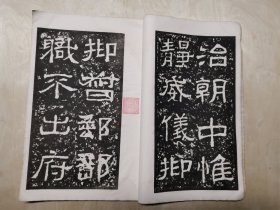 治朝中惟
靜威儀抑
抑督郵部
職不出府